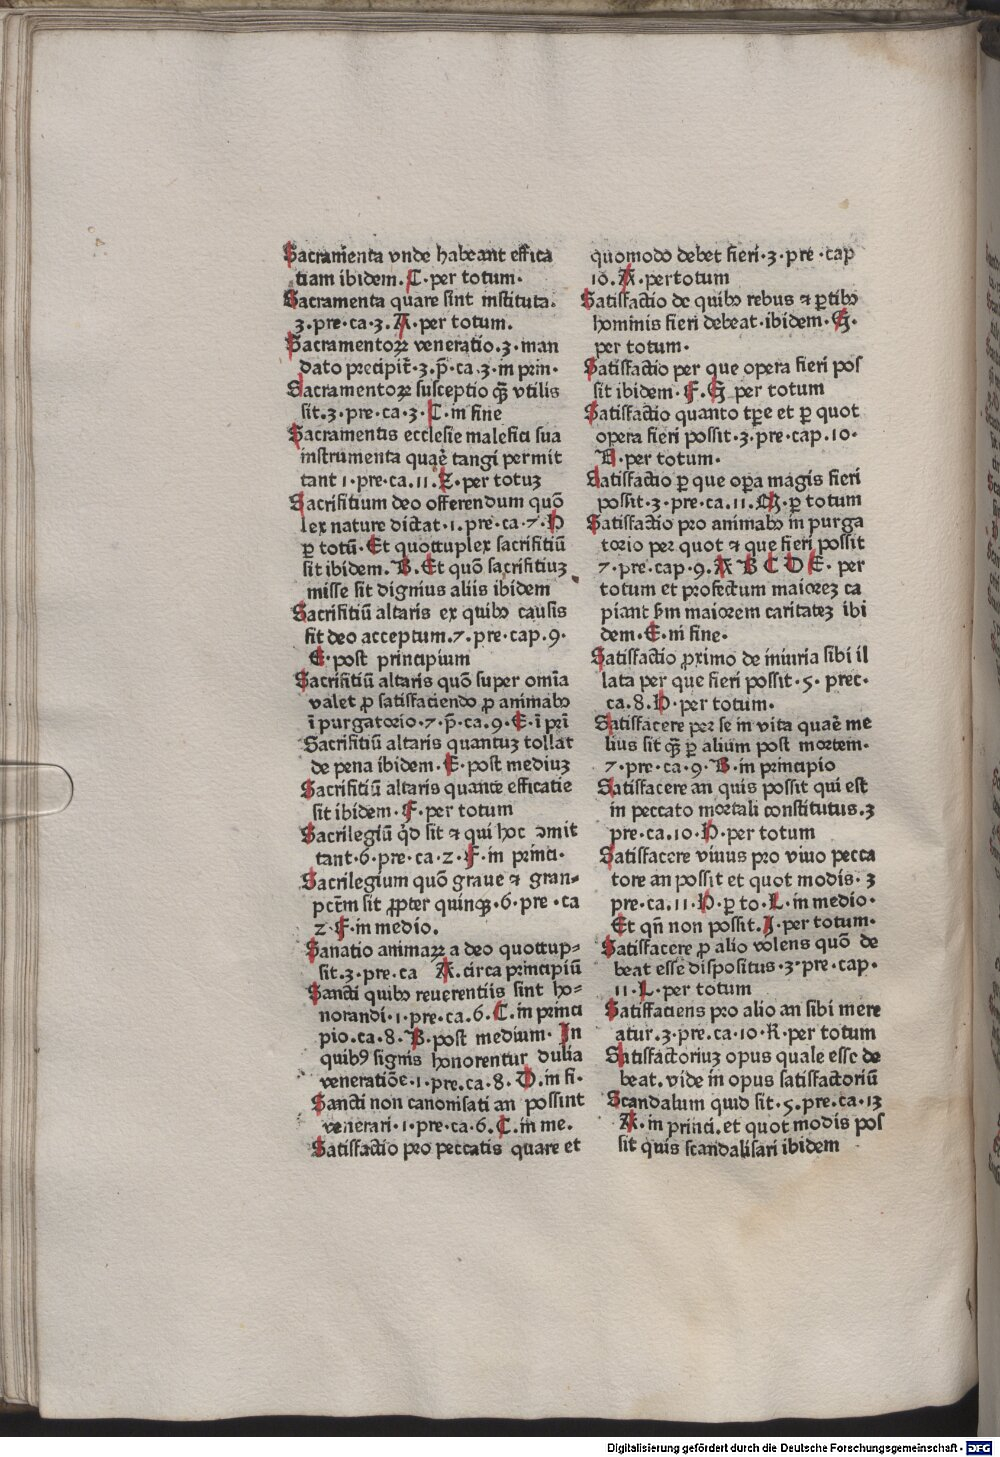 Sacramenta vnde habeant effica
tiam ibidem. C. per totum.
Sacramenta quare sint instituta.
3. pre. ca. 3. A. per totum.
Sacramentoꝝ veneratio. 3. man
dato precipit̃. 3. p̃. ca. 3. in prin.
Sacramentoꝝ susceptio qꝫ̃ vtilis
sit. 3. pre. ca. 3. C. in fine
Sacramentis ecclesie malefici sua
instrumenta quãe tangi permit
tant 1. pre. ca. 11. Z. per totuꝫ
Sacrifitium deo offerendum quõ
lex nature dictat. 1. pre. ca. 7. H
ꝑ totũ. Et quottuplex sacrifitiũ
sit ibidem. B. Et quõ sacrifitiuꝫ
misse sit dignius aliis ibidem
Sacrifitiũ altaris ex quibꝰ causis
sit deo acceptum. 7. pre. cap. 9.
E. post principium
Sacrifitiũ altaris quõ super omĩa
valet ꝓ satisfaciendo ꝓ animabꝰ
ĩ purgatorio. 7. p̃. ca. 9. E. ĩ prĩ
Sacrifitiũ altaris quantuꝫ tollat
de pena ibidem. E. post mediuꝫ
Sacrifitiũ altaris quante efficatie
sit ibidem. F. per totum
Sacrilegiũ q̇d sit ⁊ qui hoc ꝯmit
tant. 6. pre. ca. 2. F. in princi.
Sacrilegium quõ graue ⁊ gran⸗
pctm̃ sit ꝓpter quinqꝫ. 6. pre. ca
2. F. in medio.
Sanatio animaꝝ a deo quottup⸗
sit. 3. pre. ca A. circa principiũ
Sancti quibꝰ reuerentiis sint ho⸗
norandi. 1. pre. ca. 6. C. in princi
pio. ca. 8. B. post medium. In
quibꝰ signis honorentur dulia
veneratiõe. 1. pre. ca. 8. D. in fi.
Sancti non canonisati an possint
venerari. 1. pre. ca. 6. C. in me.
Satisfactio pro peccatis quare et
quomodo debet fieri. 3. pre. cap
10. A. pertotum
Satisfactio de quibꝰ rebus ⁊ ꝑtibꝰ
hominis fieri debeat. ibidem. G.
per totum.
Satisfactio per que opera fieri pos
sit ibidem. F. G per totum
Satisfactio quanto tꝑe et ꝑ quot
opera fieri possit. 3. pre. cap. 10.
H. per totum.
Satisfactio ꝑ que oꝑa magis fieri
possit. 3. pre. ca. 11. M. ꝑ totum
Satisfactio pro animabꝰ in purga
torio per quot ⁊ que fieri possit
7. pre. cap. 9. A B C D E. per
totum et profectum maioreꝫ ca
piant s̃m maiorem caritateꝫ ibi
dem. E. in fine.
Satisfactio ꝓximo de iniuria sibi il
lata per que fieri possit. 5. prec.
ca. 8. H. per totum.
Satisfacere per se in vita quãe me
lius sit qꝫ̃ ꝑ alium post mortem.
7. pre. ca. 9. B. in principio
Satisfacere an quis possit qui est
in peccato mortali constitutus. 3
pre. ca. 10. H. per totum
Satisfacere viuus pro viuo pecca
tore an possit et quot modis. 3
pre. ca. 11. H. ꝑ to. L. in medio.
Et qñ non possit. I. per totum.
Satisfacere ꝓ alio volens quõ de
beat esse dispositus. 3. pre. cap.
11. L. per totum
Satisfaciens pro alio an sibi mere
atur. 3. pre. ca. 10. K. per totum
Satisfactoriuꝫ opus quale esse de
beat. vide in opus satisfactoriũ
Scandalum quid sit. 5. pre. ca. 13
A. in princi. et quot modis pos
sit quis scandalisari ibidem
Digitalisierung gefördert durch die Deutsche Forschungsgemeinschaft - DFG